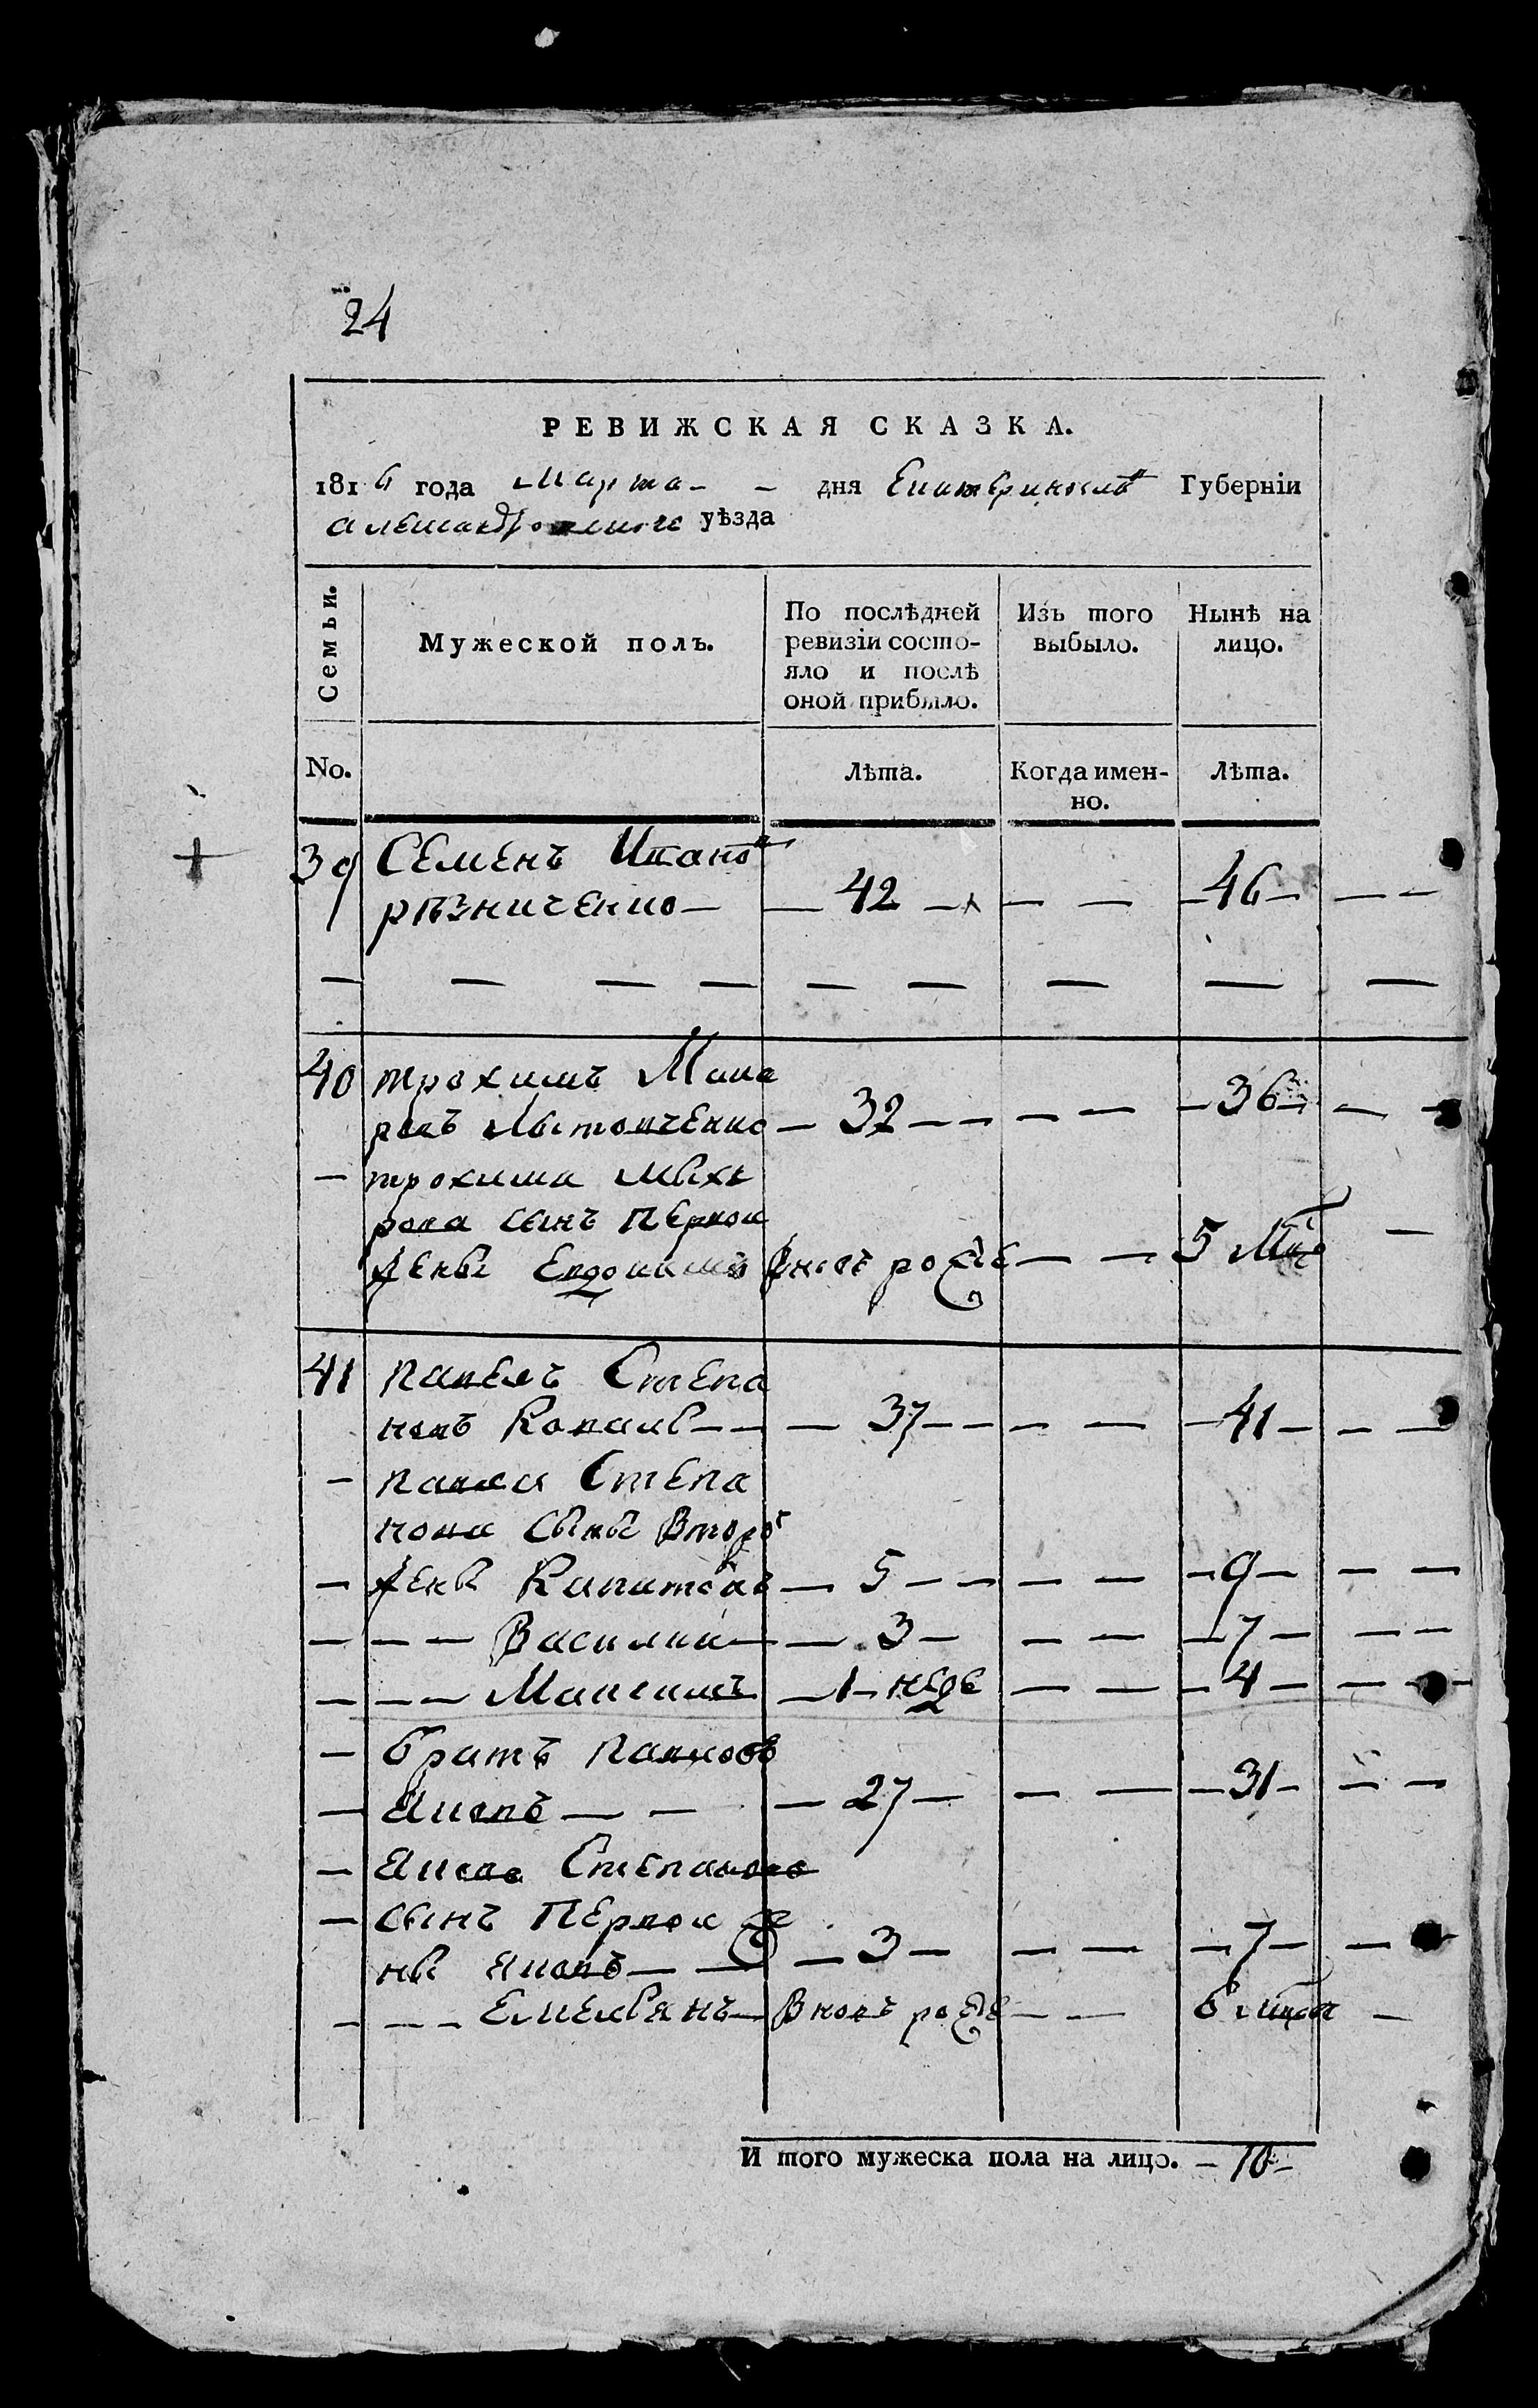 24
РЕВИЖСКАЯ СКАЗКА.
1816 года Марта - - дня Екатеринослав Губерніи
александровского уѣзда
Семьи.
Мужеской полъ.
По послѣдней
ревизіи состо-
яло и послѣ
оной прибыло.
Изъ того
выбыло.
Нынѣ на
лицо.
No.
Лѣта.
Когда имен-
но.
Лѣта.
39 Семенъ Иванов
рѣзниченко — — 42 — — — 46 — — —
40 трохимъ Мака
ровъ — 32 — — — — 36 — — —
— трохима
рова сынъ Первой
жены Евдокимъ вновь рожде — — 5 —
41 павелъ Степа
новъ Коваль — — — 37 — — — — 41 — — —
— павла Степа
нова сыны Второй
— жены Капитонъ — 5 — — — — 9 — — —
— — — Василий — — 3 — — — — 7 — — —
— — — Максимъ — 1 неде — — — 4 — — —
— братъ павловъ
— Яковъ — — — 27 — — — — 31 — — —
— Якова Степанова
— сынъ Первой же
ны Яковъ — — — 3 — — — — 7 — —
— — — Емельянъ — Вновь рожде — — 6 —
И того мужеска пола на лицо. — 10 —